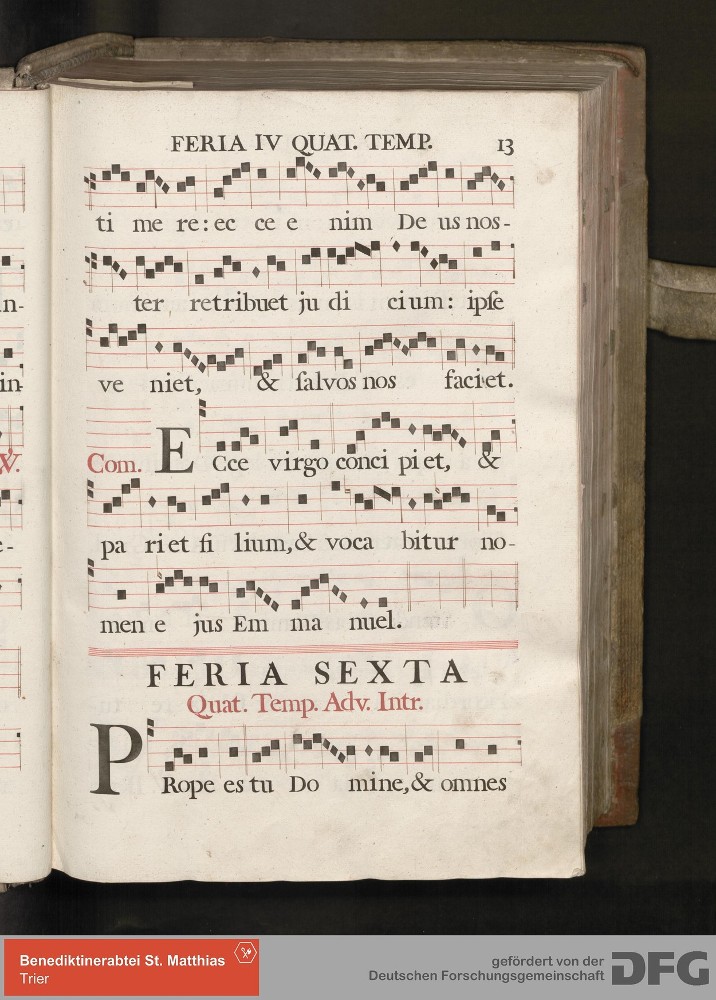 FERIA IV QUAT. TEMP. 13
ti me re: ec ce e nim De us nos-
ter retribuet ju di cium: ipſe
ve niet, & ſalvos nos faciet.
Com. E Cce virgo conci pi et, &
pa ri et fi lium, & voca bitur no-
men e jus Em ma nuel.
FERIA SEXTA
Quat. Temp. Adv. Intr.
P Rope es tu Do mine, & omnes
n-
in-
V.
e-
Benediktinerabtei St. Matthias
Trier
gefördert von der
Deutschen Forschungsgemeinschaft
DFG